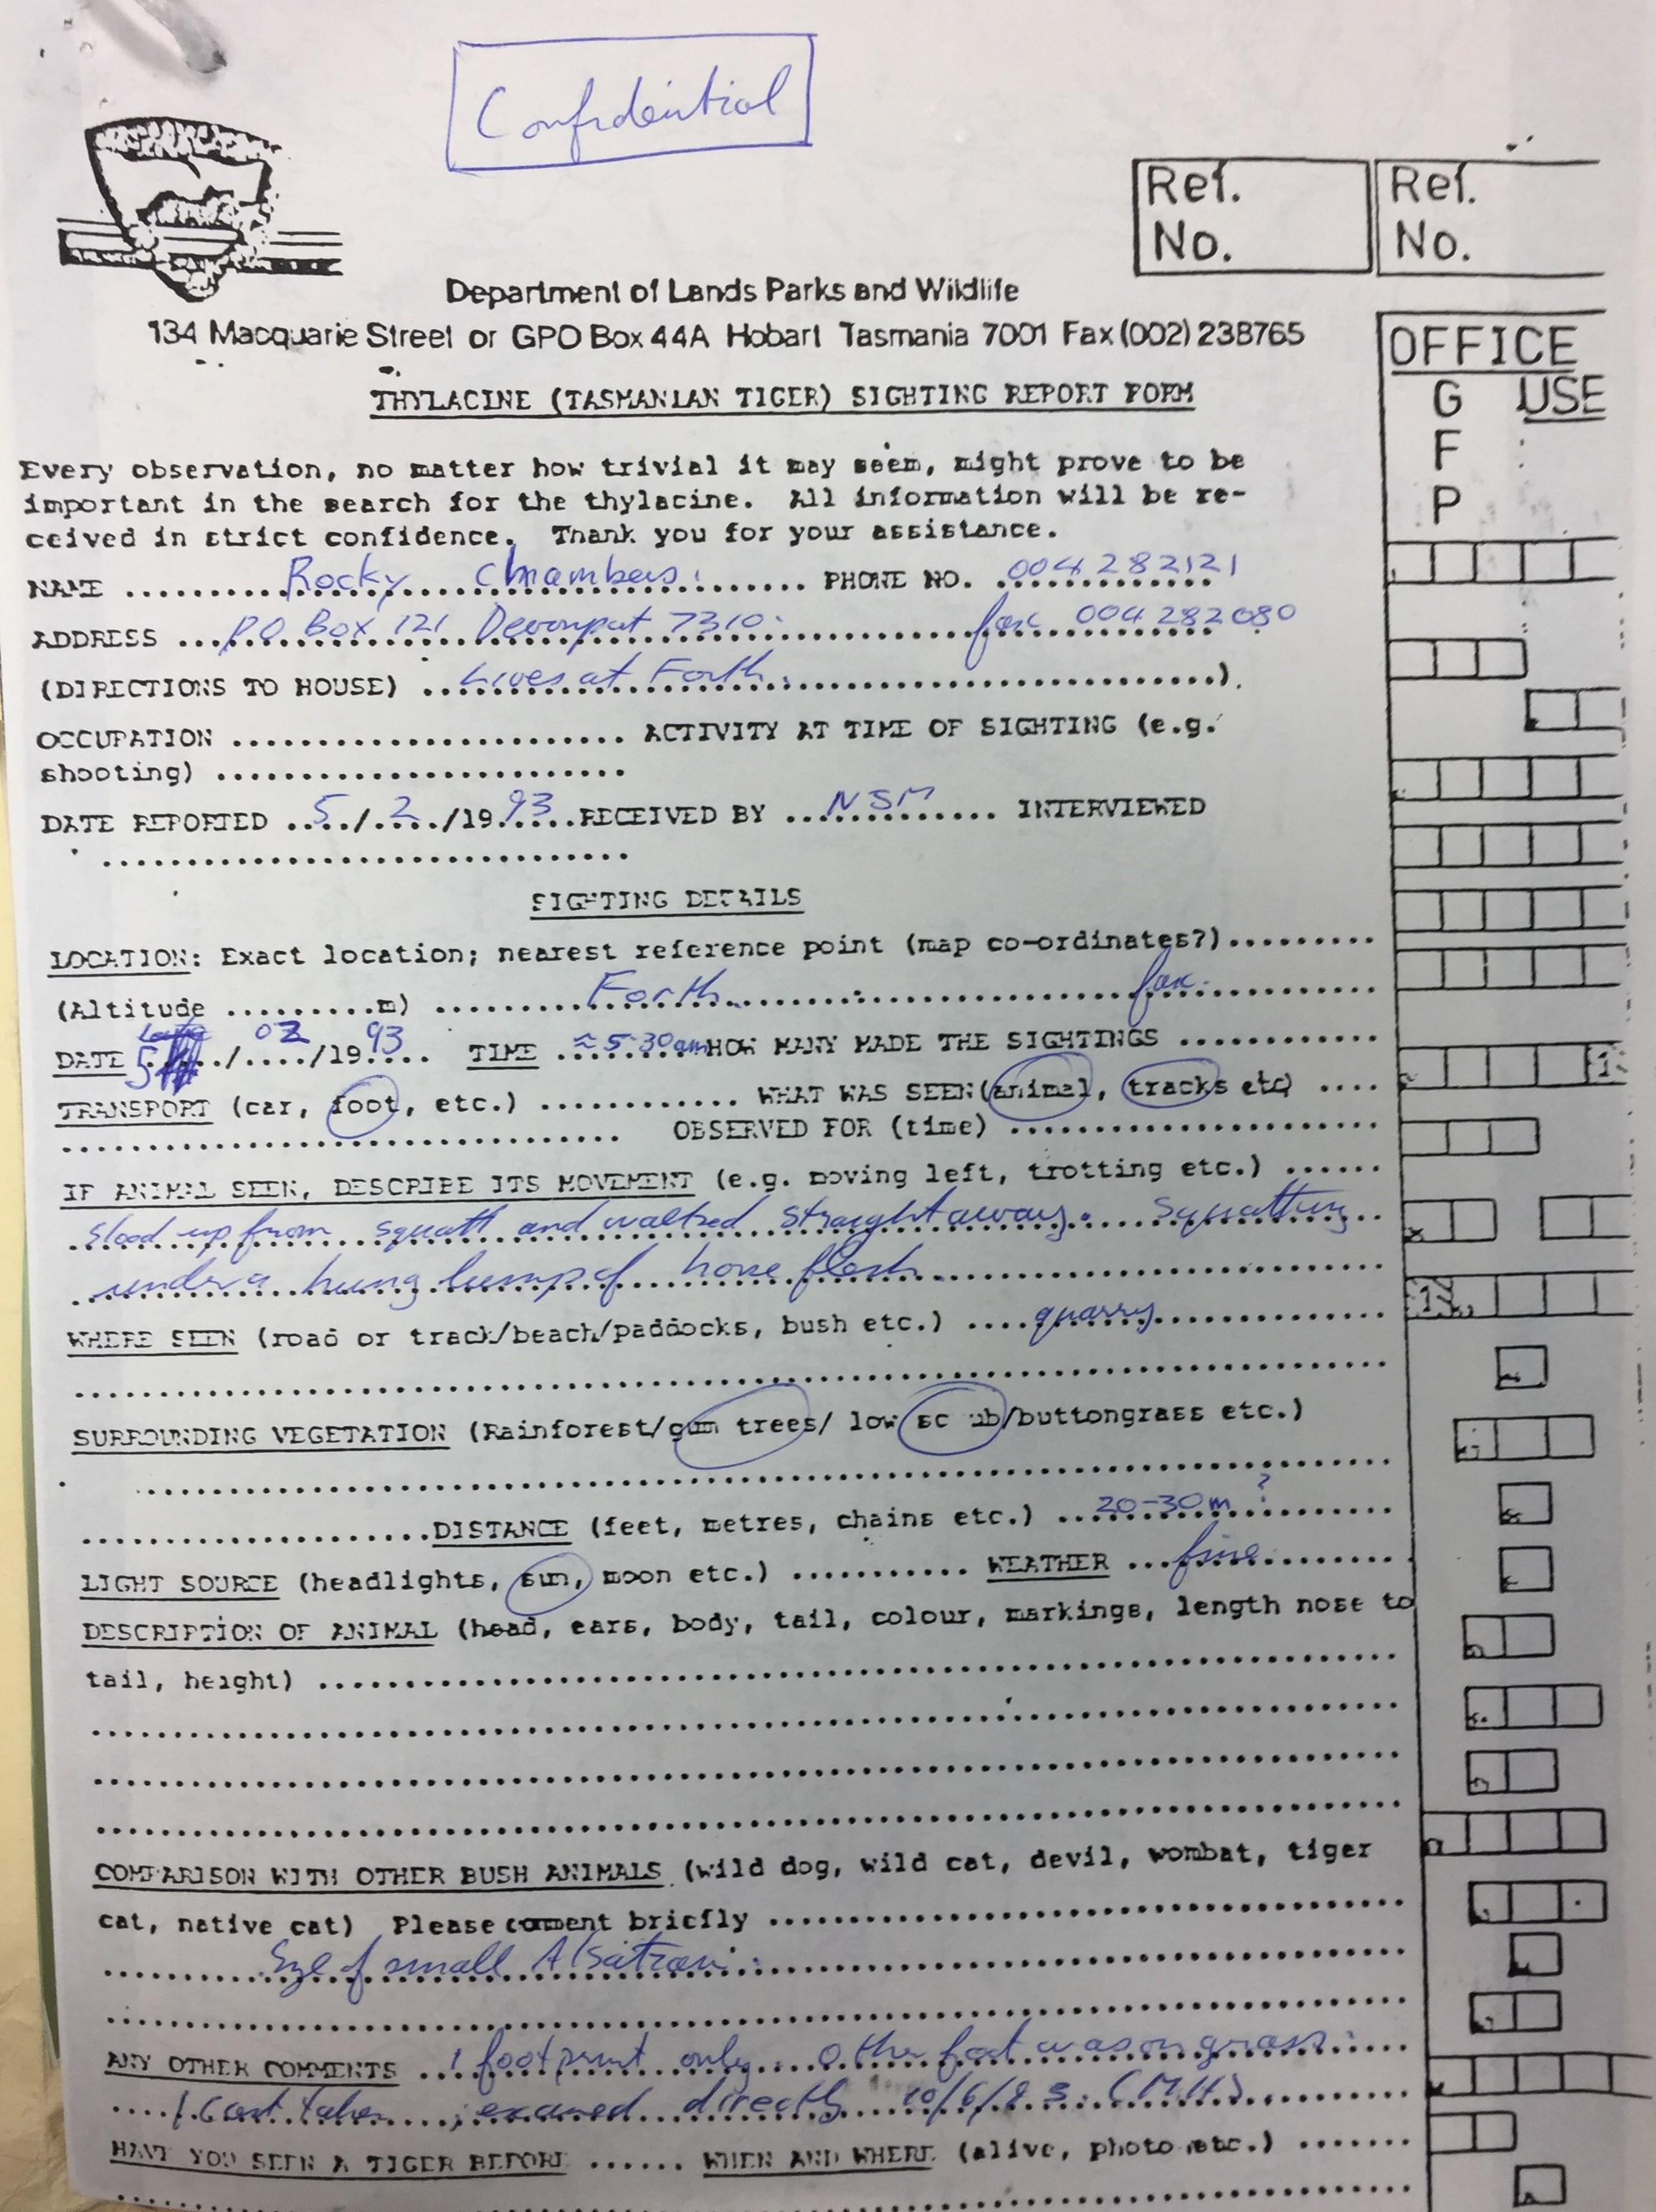 Confidential
Ref. No.
Ref. No.
Department of Lands Parks and Wildlife
134 Macquarie Street or GPO Box 44A Hobart Tasmania 7001 Fax (002) 238765
OFFICE USE
G
F
P
THYLACINE (TASMANIAN TIGER) SIGHTING REPORT FORM
Every observation, no matter how trivial it may seem, might prove to be
important in the search for the thylacine. All information will be re-
ceived in strict confidence. Thank you for your assistance.
NAME ........ Rocky Chambers ........ PHONE NO. 004 282121
ADDRESS ... P.O Box 121 Devonport 7310. ........ fax 004 282080
(DIRECTIONS TO HOUSE) .. Lives at Forth. ........).
OCCUPATION ........................ ACTIVITY AT TIME OF SIGHTING (e.g.
shooting) .........................
DATE REPORTED ..5../..2../19.93...RECEIVED BY ... NSM ... INTERVIEWED
................................
SIGHTING DETAILS
LOCATION: Exact location; nearest reference point (map co-ordinates?).........
(Altitude .........m) ........ Forth ........ fax.
DATE 5/02/19 93 TIME ≈ 5.30am HOW MANY MADE THE SIGHTINGS ............
TRANSPORT (car, foot, etc.) ............ WHAT WAS SEEN (animal, tracks etc) ....
................................ OBSERVED FOR (time) ......................
IF ANIMAL SEEN, DESCRIBE ITS MOVEMENT (e.g. moving left, trotting etc.) ......
stood up from squatt and walked straight away. Squatting
under a hung lump of horse flesh.
WHERE SEEN (road or track/beach/paddocks, bush etc.) .... quarry
................................
SURROUNDING VEGETATION (Rainforest/gum trees/ low sc ub/buttongrass etc.)
................................
......................DISTANCE (feet, metres, chains etc.) ... 20-30m ?
LIGHT SOURCE (headlights, sun, moon etc.) ........... WEATHER ... fine
DESCRIPTION OF ANIMAL (head, ears, body, tail, colour, markings, length nose to
tail, height) ................................
................................
................................
................................
COMPARISON WITH OTHER BUSH ANIMALS (wild dog, wild cat, devil, wombat, tiger
cat, native cat) Please comment briefly ................................
Size of small Alsatian.
................................
ANY OTHER COMMENTS ... 1 footprint only. Other foot was on grass.
1 Cast taken; directly 10/6/93. (MH)
HAVE YOU SEEN A TIGER BEFORE ...... WHEN AND WHERE (alive, photo etc.) .......
................................